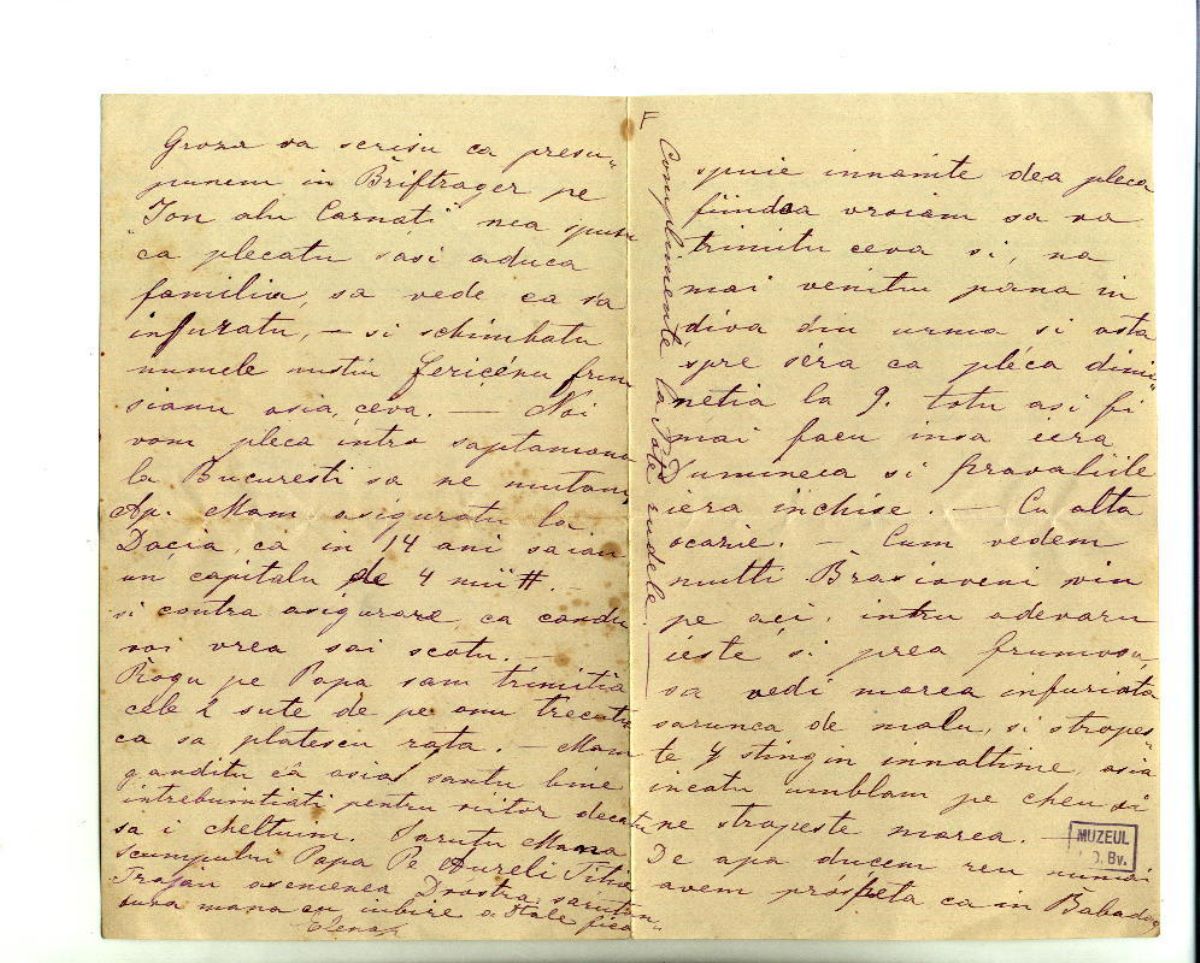 Groza va scrisu ca presu„
punem in Briftrager pe
"Ion alu Carnati" nea spusu
ca plecatu sasi aduca
familia, sa vede ca sa
infuratu, – si schimbatu
numele nustiu Fericénu frum
sianu asia, ceva. — Noi
vom pleca intro saptamana
la Bucuresti sa ne mutam,
Ap. Mam asiguratu la
Dacia, ca in 14 ani saiau
un capitalu de 4 mii #. –
si contra asigurare, ca candu
voi vrea sai scotu. –
Rogu pe Papa sam trimitia
cele 2 sute de pe anu trecutu
ca sa platescu rata. – Mam
ganditu câ asia santu bine
intrebuintiati pentru viitor decatu
sa i cheltuim. Sarutu Mama
scumpului Papa Pe Aureli Titia
Trajan asemenea Drostra sarutan„
duva mana cu iubire a Stale fica
Elena
F
Complimente la Tote rudele. —
spuie innainte dea pleca
fiindca vroiam sa va
trimitu ceva si, na
mai venitu pana in
diva din urma si asta
spre séra ca pléca dimi„
netia la 9. totu asi fi
mai facu insa iera
Dumineca si Pravaliile
iera inchise. — Cu alta
ocazie. – Cum vedem
multi Brasioveni vin
pe aci, intru adevaru
ieste si prea frumosu,
sa vedi marea infuriata
sarunca de malu, si stropes„
te 4 stingin innaltime, asia
incatu umblam pe cheu si
ne stropeste marea. —
De apa ducem reu numai
avem próspeta ca in Babadag
MUZEUL
D. Bv.